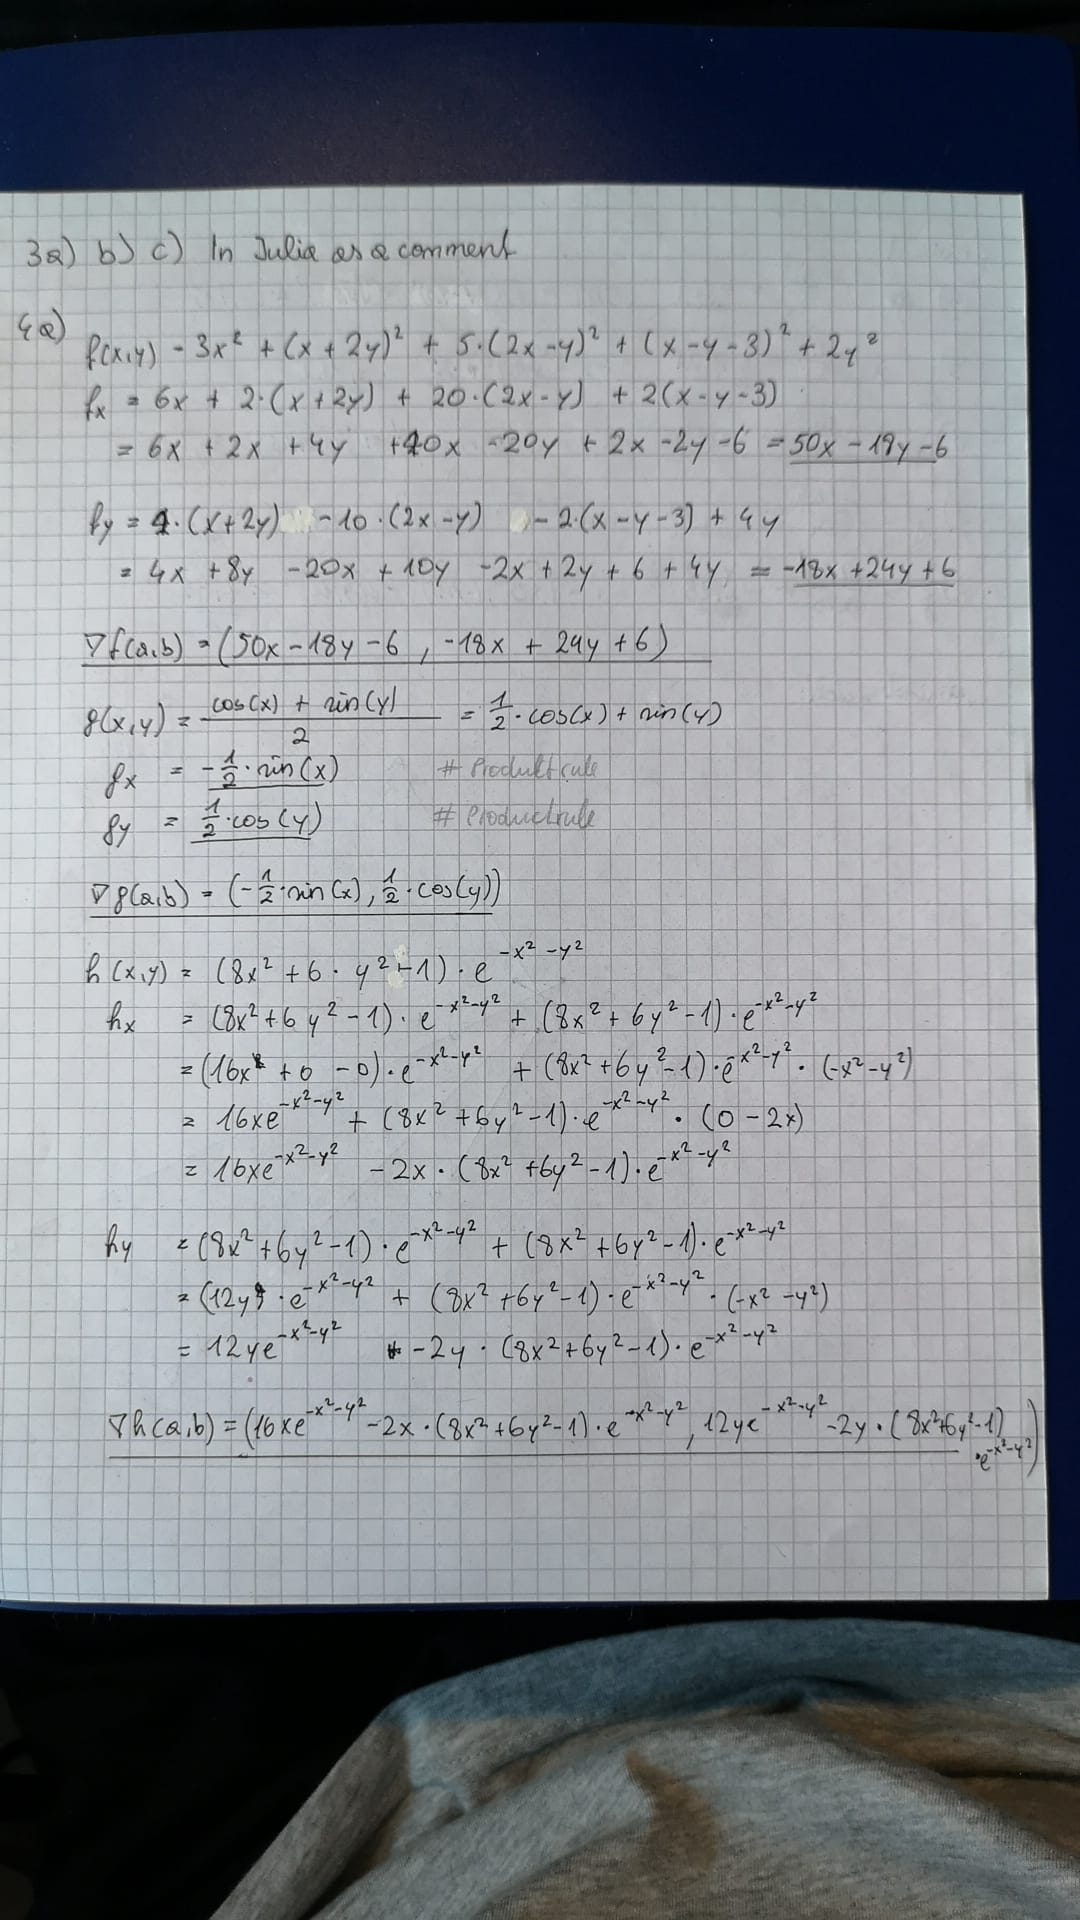 3a) b) c) In Julia as a comment
4a)
f(x,y) = 3x² + (x + 2y)² + 5·(2x-y)² + (x-y-3)² + 2y²
fx = 6x + 2·(x+2y) + 20·(2x-y) + 2(x-y-3)
= 6x + 2x + 4y + 40x - 20y + 2x - 2y - 6 = 50x - 18y - 6
fy = 4·(x+2y) - 10·(2x-y) - 2·(x-y-3) + 4y
= 4x + 8y - 20x + 10y - 2x + 2y + 6 + 4y = -18x + 24y + 6
∇f(a,b) = (50x - 18y - 6, -18x + 24y + 6)
g(x,y) = (cos(x) + sin(y))/2 = 1/2·cos(x) + sin(y)
gx = -1/2·sin(x) # Produktrule
gy = 1/2·cos(y) # Productrule
∇g(a,b) = (-1/2·sin(x), 1/2·cos(y))
h(x,y) = (8x² + 6·y² - 1)·e^(-x²-y²)
hx = (8x² + 6y² - 1)·e^(-x²-y²) + (8x² + 6y² - 1)·e^(-x²-y²)
= (16x + 0 - 0)·e^(-x²-y²) + (8x² + 6y² - 1)·e^(-x²-y²)·(-x²-y²)
= 16xe^(-x²-y²) + (8x² + 6y² - 1)·e^(-x²-y²)·(0 - 2x)
= 16xe^(-x²-y²) - 2x·(8x² + 6y² - 1)·e^(-x²-y²)
hy = (8x² + 6y² - 1)·e^(-x²-y²) + (8x² + 6y² - 1)·e^(-x²-y²)
= (12y)·e^(-x²-y²) + (8x² + 6y² - 1)·e^(-x²-y²)·(-x²-y²)
= 12ye^(-x²-y²) - 2y·(8x² + 6y² - 1)·e^(-x²-y²)
∇h(a,b) = (16xe^(-x²-y²) - 2x·(8x² + 6y² - 1)·e^(-x²-y²), 12ye^(-x²-y²) - 2y·(8x² + 6y² - 1)
·e^(-x²-y²))